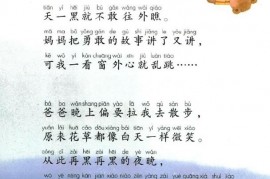 tiān yì hēi jiù bù gǎn wǎng wài qiáo
天一黑就不敢往外瞧。
mā ma bǎ yǒng gǎn de gù shi jiǎng le yòu jiǎng
妈妈把勇敢的故事讲了又讲，
kě wǒ yí kàn chuāng wài xīn jiù luàn tiào
可我一看窗外心就乱跳……
bà ba wǎn shang piān yào lā wǒ qù sàn bù
爸爸晚上偏要拉我去散步，
yuán lái huā cǎo dōu xiàng bái tiān yí yàng wēi xiào
原来花草都像白天一样微笑。
cóng cǐ zài hēi zài hēi de yè wǎn
从此再黑再黑的夜晚，